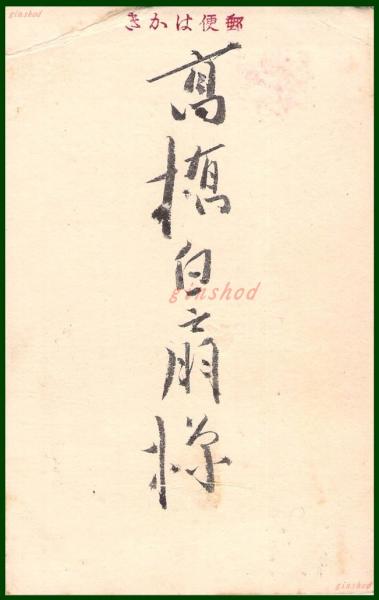 ginshod
郵便はかき
高橋白扇様
ginshod
ginshod